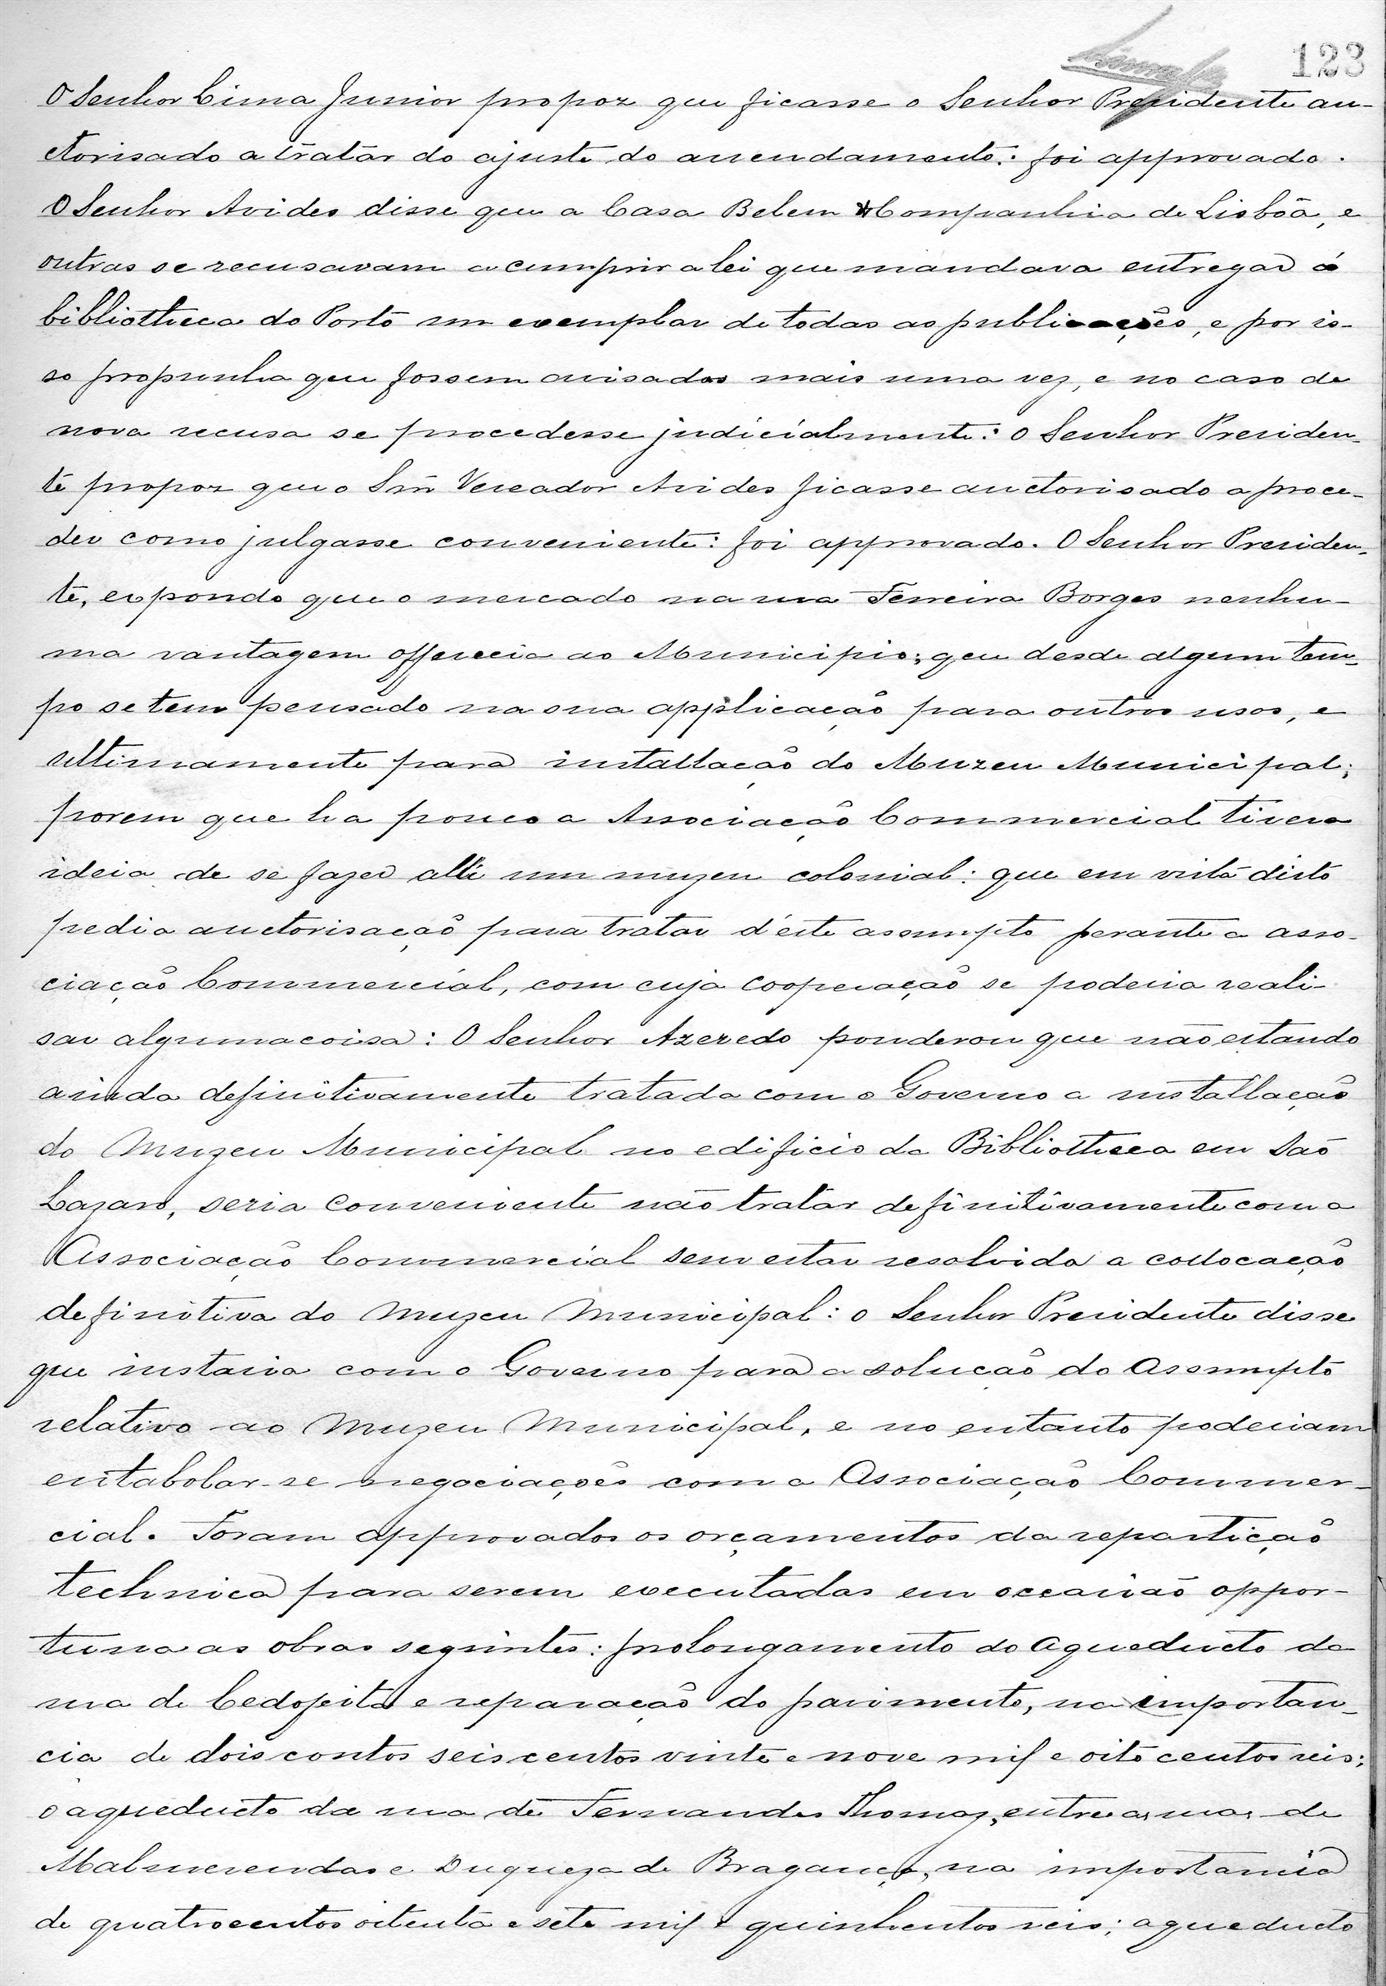 123
O Senhor Lima Junior propoz que ficasse o Senhor Presidente au-
ctorisado a tratar do ajuste do arrendamento: foi approvado.
O Senhor Avides disse que a Casa Belem & Companhia de Lisbôa, e
outras se recusavam a cumprir a lei que mandava entregar á
bibliotheca do Porto um exemplar de todas as publicações, e por is-
so propunha que fossem avisados mais uma vez, e no caso de
nova recusa se procedesse judicialmente: o Senhor Presiden-
te propoz que o Snr̃ Vereador Avides ficasse auctorisado a proce-
der como julgasse conveniente: foi approvado. O Senhor Presiden-
te, expondo que o mercado na rua Ferreira Borges nenhu-
ma vantagem offerecia ao Municipio; que desde algum tem-
po se tem pensado na sua applicação para outros usos, e
ultimamente para installação do Muzeu Municipal;
porem que ha pouco a Associação Commercial tivera
ideia de se fazer alli um muzeu colonial: que em vista disto
pedia auctorisação para tratar d'éste assumpto perante a asso-
ciação Commercial, com cuja cooperação se poderia reali-
sar alguma coisa: O Senhor Azeredo ponderou que não estando
ainda definitivamente tratada com o Governo a installação
do Muzeu Municipal no edificio da Bibliotheca em São
Lazaro, seria conveniente não tratar definitivamente com a
Associação Commercial sem estar resolvida a collocação
definitiva do Muzeu Municipal: o Senhor Presidente disse
que instaria com o Governo para a solução do assumpto
relativo ao Muzeu Municipal, e no entanto poderiam
entabolar-se negociações com a Associação Commer-
cial. Foram approvados os orçamentos da repartição
technica para serem executadas em occasião oppor-
tuna as obras seguintes: prolongamento do aqueducto da
rua de Cedofeita e reparação do pavimento, na importan-
cia de dois contos seis centos vinte e nove mil e oito centos reis;
o aqueducto da rua de Fernandes Thomaz, entre as ruas de
Malmerendas e Duqueza de Bragança, na importancia
de quatrocentos oitenta e sete mil e quinhentos reis; aqueducto